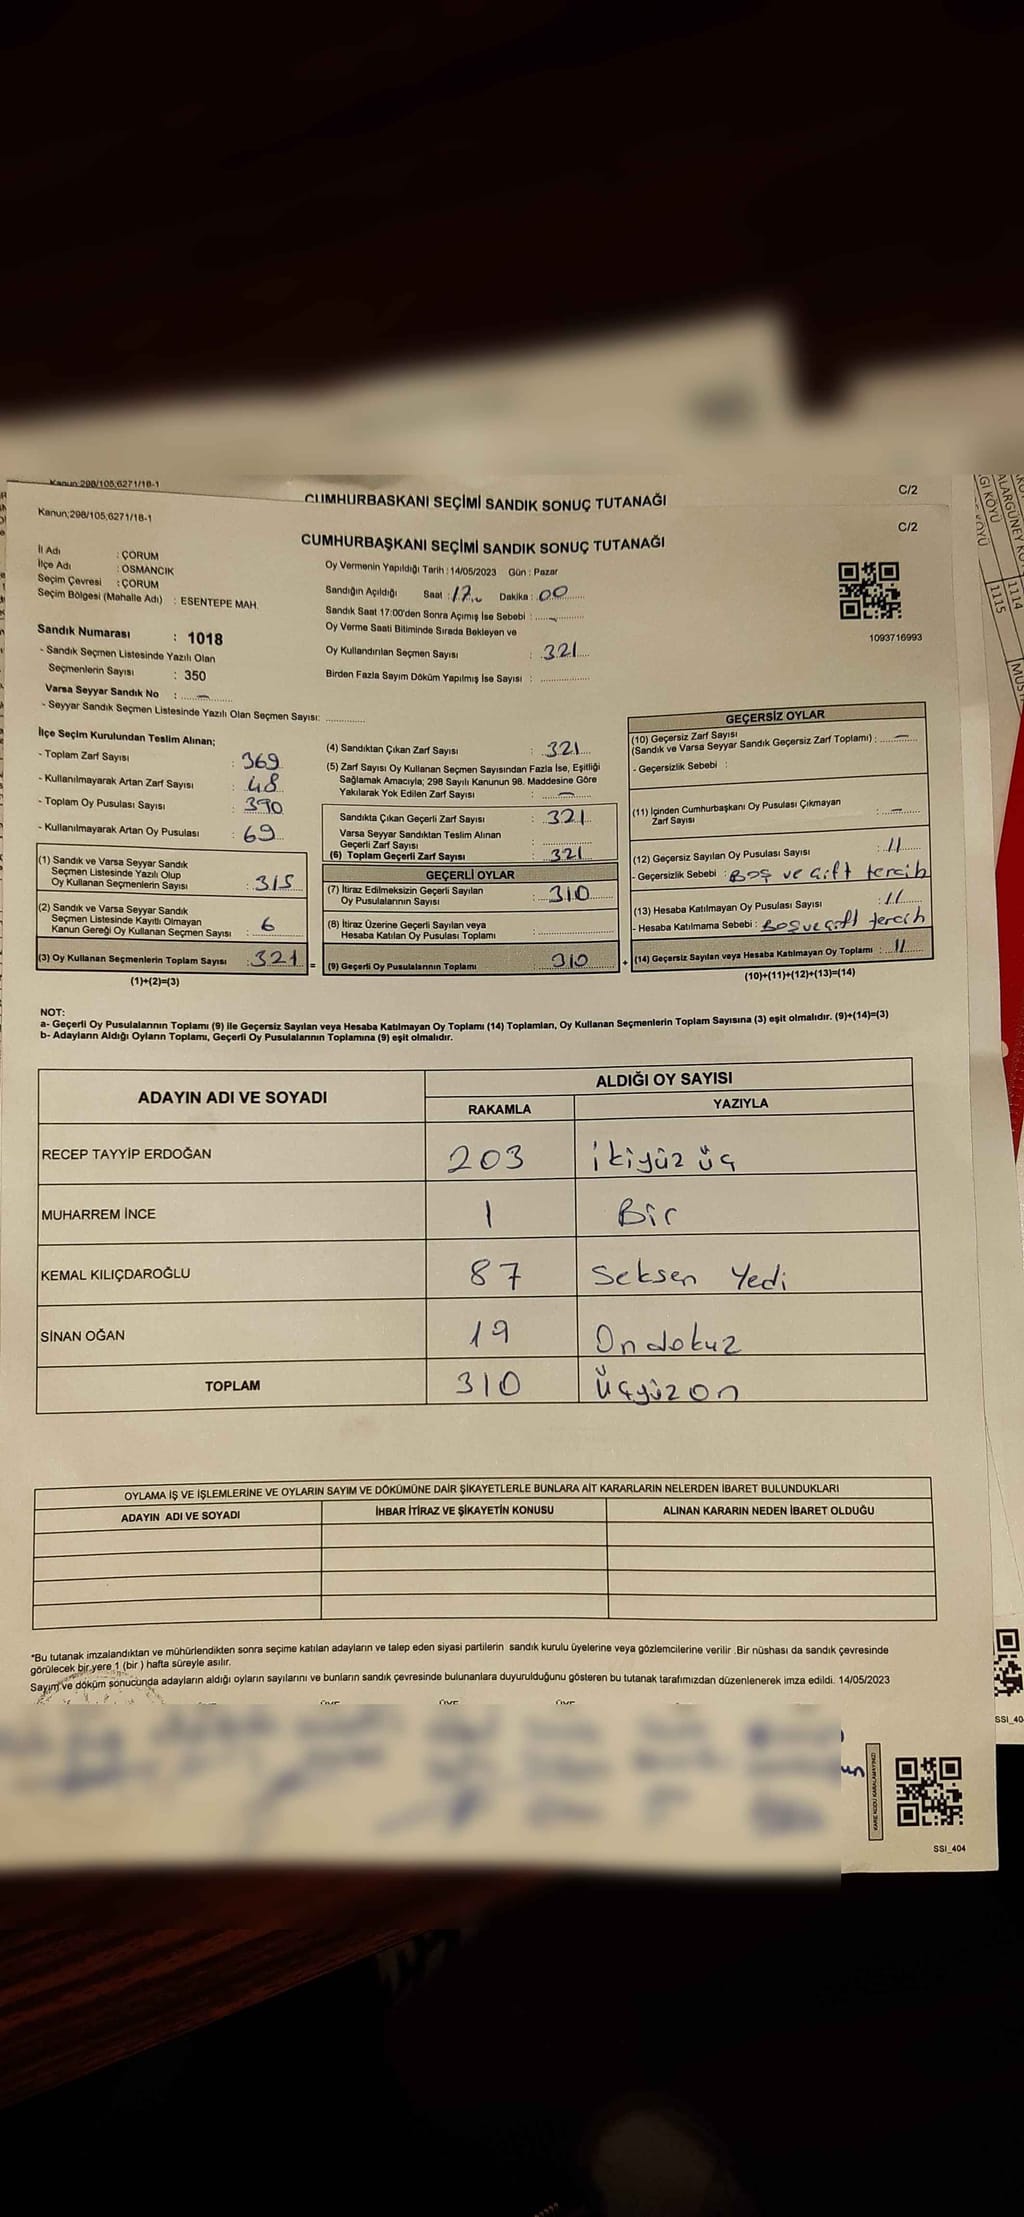 Kanun:298/105,6271/18-1
CUMHURBAŞKANI SEÇİMİ SANDIK SONUÇ TUTANAĞI
C/2
Kanun;298/105,6271/18-1
CUMHURBAŞKANI SEÇİMİ SANDIK SONUÇ TUTANAĞI
C/2
İl Adı : ÇORUM
İlçe Adı : OSMANCIK
Seçim Çevresi : ÇORUM
Seçim Bölgesi (Mahalle Adı) : ESENTEPE MAH.
Sandık Numarası : 1018
- Sandık Seçmen Listesinde Yazılı Olan
Seçmenlerin Sayısı : 350
Varsa Seyyar Sandık No : —
- Seyyar Sandık Seçmen Listesinde Yazılı Olan Seçmen Sayısı:
Oy Vermenin Yapıldığı Tarih : 14/05/2023 Gün : Pazar
Sandığın Açıldığı Saat : 17 Dakika : 00
Sandık Saat 17:00'den Sonra Açımış İse Sebebi : —
Oy Verme Saati Bitiminde Sırada Bekleyen ve
Oy Kullandırılan Seçmen Sayısı : 321
Birden Fazla Sayım Döküm Yapılmış İse Sayısı :
1093716993
İlçe Seçim Kurulundan Teslim Alınan;
- Toplam Zarf Sayısı : 369
- Kullanılmayarak Artan Zarf Sayısı : 48
- Toplam Oy Pusulası Sayısı : 390
- Kullanılmayarak Artan Oy Pusulası : 69
(1) Sandık ve Varsa Seyyar Sandık
Seçmen Listesinde Yazılı Olup
Oy Kullanan Seçmenlerin Sayısı : 315
(2) Sandık ve Varsa Seyyar Sandık
Seçmen Listesinde Kayıtlı Olmayan
Kanun Gereği Oy Kullanan Seçmen Sayısı : 6
(3) Oy Kullanan Seçmenlerin Toplam Sayısı : 321
(1)+(2)=(3)
(4) Sandıktan Çıkan Zarf Sayısı : 321
(5) Zarf Sayısı Oy Kullanan Seçmen Sayısından Fazla İse, Eşitliği
Sağlamak Amacıyla; 298 Sayılı Kanunun 98. Maddesine Göre
Yakılarak Yok Edilen Zarf Sayısı : —
Sandıkta Çıkan Geçerli Zarf Sayısı : 321
Varsa Seyyar Sandıktan Teslim Alınan
Geçerli Zarf Sayısı :
(6) Toplam Geçerli Zarf Sayısı : 321
GEÇERLİ OYLAR
(7) İtiraz Edilmeksizin Geçerli Sayılan
Oy Pusulalarının Sayısı : 310
(8) İtiraz Üzerine Geçerli Sayılan veya
Hesaba Katılan Oy Pusulası Toplamı :
= (9) Geçerli Oy Pusulalarının Toplamı 310 +
GEÇERSİZ OYLAR
(10) Geçersiz Zarf Sayısı
(Sandık ve Varsa Seyyar Sandık Geçersiz Zarf Toplamı) : —
- Geçersizlik Sebebi :
(11) İçinden Cumhurbaşkanı Oy Pusulası Çıkmayan
Zarf Sayısı : —
(12) Geçersiz Sayılan Oy Pusulası Sayısı : 11
- Geçersizlik Sebebi : Boş ve çift tercih
(13) Hesaba Katılmayan Oy Pusulası Sayısı : 11
- Hesaba Katılmama Sebebi : Boş ve çift tercih
(14) Geçersiz Sayılan veya Hesaba Katılmayan Oy Toplamı : 11
(10)+(11)+(12)+(13)=(14)
NOT:
a- Geçerli Oy Pusulalarının Toplamı (9) ile Geçersiz Sayılan veya Hesaba Katılmayan Oy Toplamı (14) Toplamları, Oy Kullanan Seçmenlerin Toplam Sayısına (3) eşit olmalıdır. (9)+(14)=(3)
b- Adayların Aldığı Oyların Toplamı, Geçerli Oy Pusulalarının Toplamına (9) eşit olmalıdır.
ADAYIN ADI VE SOYADI
ALDIĞI OY SAYISI
RAKAMLA YAZIYLA
RECEP TAYYİP ERDOĞAN 203 ikiyüz üç
MUHARREM İNCE 1 Bir
KEMAL KILIÇDAROĞLU 87 Seksen Yedi
SİNAN OĞAN 19 Ondokuz
TOPLAM 310 Üçyüz on
OYLAMA İŞ VE İŞLEMLERİNE VE OYLARIN SAYIM VE DÖKÜMÜNE DAİR ŞİKAYETLERLE BUNLARA AİT KARARLARIN NELERDEN İBARET BULUNDUKLARI
ADAYIN ADI VE SOYADI İHBAR İTİRAZ VE ŞİKAYETİN KONUSU ALINAN KARARIN NEDEN İBARET OLDUĞU
*Bu tutanak imzalandıktan ve mühürlendikten sonra seçime katılan adayların ve talep eden siyasi partilerin sandık kurulu üyelerine veya gözlemcilerine verilir .Bir nüshası da sandık çevresinde
görülecek bir yere 1 (bir ) hafta süreyle asılır.
Sayım ve döküm sonucunda adayların aldığı oyların sayılarını ve bunların sandık çevresinde bulunanlara duyurulduğunu gösteren bu tutanak tarafımızdan düzenlenerek imza edildi. 14/05/2023
ÜYE ÜYE ÜYE
KARE KODU KARALAMAYINIZ!
SSI_404
SSI_40
1114
1115